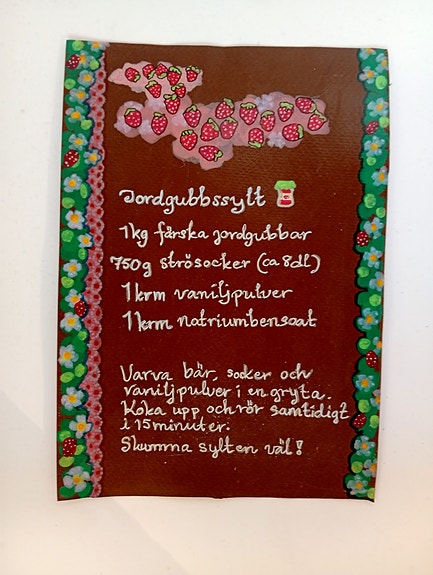 Jordgubbssylt
1kg färska jordgubbar
750g strösocker (ca 8dl)
1krm vaniljpulver
1krm natriumbensoat
Varva bär, socker och
vaniljpulver i en gryta.
Koka upp och rör samtidigt
i 15 minuter.
Skumma sylten väl!